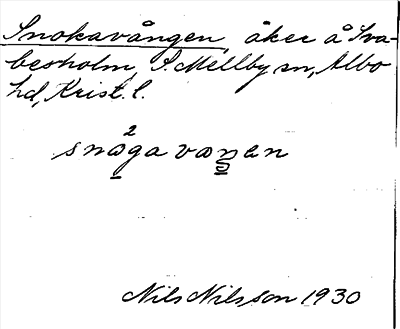 Snokavången, åker å Sva-
besholm, S. Mellby sn, Albo
hd, Krist. l.
2
snoga vaŋen
Nils Nilsson 1930